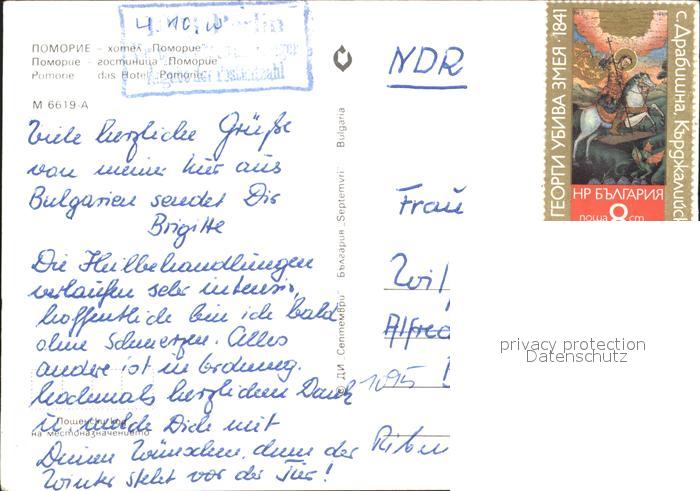 4.10.
Berlin
Postleitzahl
ПОМОРИЕ – хотел „Поморие“
Поморие – гостиница „Поморие“
Pomorie das Hotel „Pomorie“
М 6619-А
Viele herzliche Grüße
von meiner Kur aus
Bulgarien sendet Dir
Brigitte
Die Heilbehandlungen
verlaufen sehr intensiv,
hoffentlich bin ich bald
ohne Schmerzen. Alles
andere ist in Ordnung.
Nochmals herzlichen Dank
u. melde Dich mit
Deinen Wünschen, denn der
Winter steht vor der Tür!
Пощенски код
на местоназначението
© ДИ „Септември“ България „Septemvri“ Bulgaria
NDR
Frau
Wil
Alfred
1095
privacy protection
Datenschutz
ГЕОРГИ УБИВА ЗМЕЯ · 1841
с. Драбишна, Кърджалийск
НР БЪЛГАРИЯ
поща 8 ст